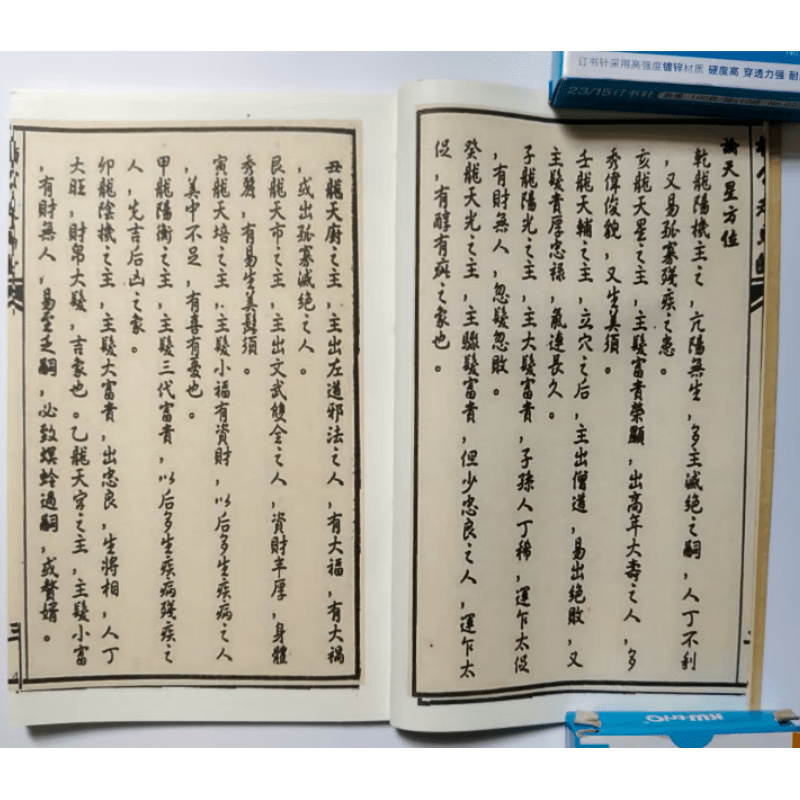 订书针采用高强度镀锌材质 硬度高 穿透力强
23/15订书针
論天星方位
乾龍陽機主之,亢陽無生,多主滅絕之嗣,人丁不利
,又易孤寡殘疾之患。
亥龍天星之主,主髮富貴榮顯,出高年大壽之人,多
秀偉俊貌,又生美須。
壬龍天輔之主,立穴之后,主出僧道,易出絕敗,又
主髮貴厚忠祿,氣連長久。
子龍陽光之主,主大髮富貴,子孫人丁稀,運乍太促
,有財無人,忽髮忽敗。
癸龍天光之主,主驟髮富貴,但少忠良之人,運乍太
促,有醇有疵之家也。
丑龍天廚之主,主出左道邪法之人,有大福,有大禍
,或出孤寡滅絕之人。
艮龍天市之主,主出文武雙全之人,資財丰厚,身體
秀麗,有易生美鬍須。
寅龍天培之主,主髮小福有資財,以后多生疾病之人
,美中不足,有喜有憂也。
甲龍陽衡之主,主髮三代富貴,以后多生疾病殘疾之
人,先吉后凶之家。
卯龍陰機之主,主髮大富貴,出忠良,生將相,人丁
大旺,財帛大髮,吉家也。乙龍天官之主,主髮小富
,有財無人,易至乏嗣,必致螟蛉過嗣,或贅婿。
三
KW-triO